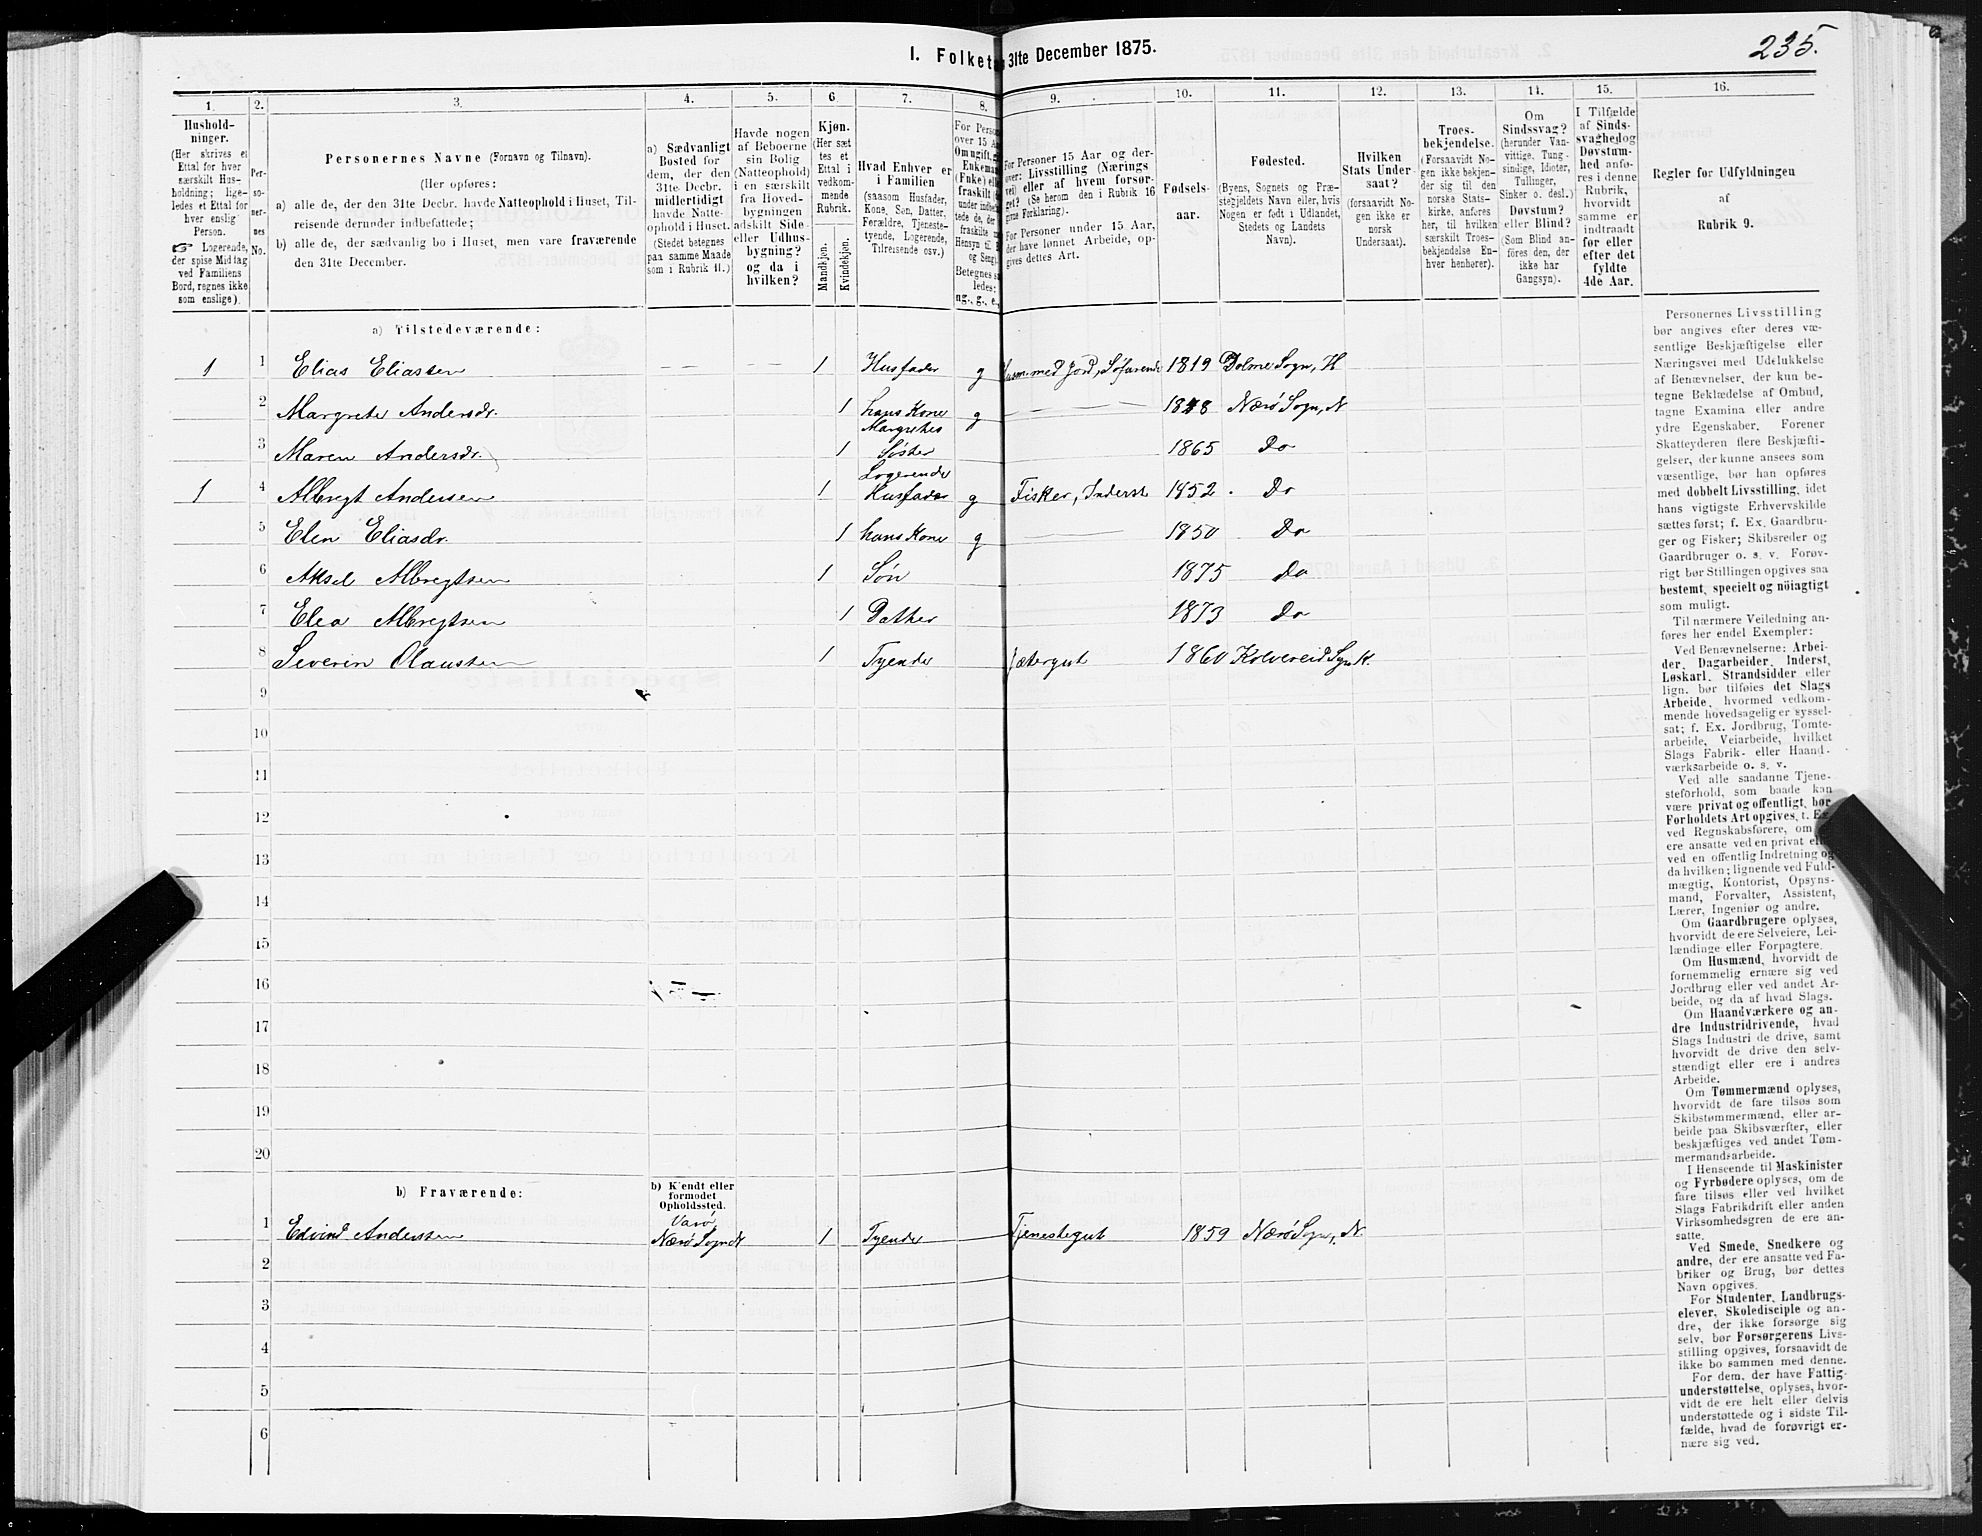 235.
I. Folket 31te December 1875.
1. 2. 3. 4. 5. 6. 7. 8. 9. 10. 11. 12. 13. 14. 15. 16.
Hushold-
ninger.
(Her skrives et
Ettal for hver
særskilt Hus-
holdning; lige-
ledes et Ettal for
hver enslig
Person.
☞ Logerende,
der spise Middag
ved Familiens
Bord, regnes ikke
som enslige).
Per-
so-
ner-
nes
No.
Personernes Navne (Fornavn og Tilnavn).
(Her opføres:
a) alle de, der den 31te Decbr. havde Natteophold i Huset, Til-
reisende derunder indbefattede;
b) alle de, der sædvanlig bo i Huset, men vare fraværende
den 31te December.
a) Sædvanligt
Bosted for
dem, der den
31te Decbr.
midlertidigt
havde Natte-
ophold i Huset.
(Stedet betegnes
paa samme Maade
som i Rubrik 11.)
Havde nogen
af Beboerne
sin Bolig
(Natteophold)
i en særskilt
fra Hoved-
bygningen
adskilt Side-
eller Udhus-
bygning?
og da i
hvilken?
Kjøn.
(Her sæt
tes et
Ettal i
vedkom-
mende
Rubrik.
Mandkjøn.
Kvindekjøn.
Hvad Enhver er
i Familien
(saasom Husfader,
Kone, Søn, Datter,
Forældre, Tjeneste-
tyende, Logerende,
Tilreisende osv.)
For Person
over 15 A
Om ugift, g
Enkeman
(Fnke) el
fraskilt
Betegnes s
ledes:
ng., g., e.,
For Personer 15 Aar og der-
over: Livsstilling (Nærings
vei) eller af hvem forsør-
get? (Se herom den i Rubrik 16
givne Forklaring).
For Personer under 15 Aar,
der have lønnet Arbeide, op-
gives dettes Art.
Fødsels-
aar.
Fødested.
(Byens, Sognets og Præ-
stegjeldets Navn eller, hvis
Nogen er født i Udlandet,
Stedets og Landets
Navn).
Hvilken
Stats Under-
saat?
(forsaavidt No-
gen ikke er
norsk
Undersaat).
Troes-
bekjendelse.
(Forsaavidt No-
gen ikke bekjen-
der sig til den
norske Stats-
kirke, anføres
her, til hvilken
særskilt Troes-
bekjendelse En-
hver henhører).
Om
Sindssvag?
(herunder Van-
vittige, Tung-
sindige, Idioter,
Tullinger,
Sinker o. desl.)
Døvstum?
eller Blind?
(Som Blind an-
føres den, der
ikke har
Gangsyn).
I Tilfælde
af Sinds-
svaghed og
Døvstum-
hed anfø-
res i denne
Rubrik,
hvorvidt
samme er
indtraadt
før eller
efter det
fyldte
4de Aar.
Regler for Udfyldningen
af
Rubrik 9.
a) Tilstedeværende:
1 1 Elias Eliassen 1 Husfader g med Jord, Søfarende 1819 Dolmø Sogn, H
2 Margrete Andersdr. 1 hans Kone g Nærø Sogn, N
3 Maren Andersdr. 1 Margretes Søster 1865 Do
1 4 Albregt Andersen 1 Logerende Husfader g Fisker, Inderst 1852 Do
5 Elen Eliasdr. 1 hans Kone g 1850 Do
6 Aksel Albregtsen 1 Søn 1875 Do
7 Elea Albregtsen 1 Datter 1873 Do
8 Severin Olaussen 1 Tyende Jætergut 1860 Kolvereid Sgn K.
9
10
11
12
13
14
15
16
17
18
19
20
b) Fraværende:
b) Kendt eller
formodet
Opholdssted.
1 Edvind Anderssen Varø Nærø Sogn N 1 Tyende Tjenestegut 1859 Nærø Sogn, N.
2
3
4
5
6
Personernes Livsstilling
bør angives efter deres væ-
sentlige Beskjæftigelse eller
Næringsvei med Udelukkelse
af Benævnelser, der kun be-
tegne Beklædelse af Ombud,
tagne Examina eller andre
ydre Egenskaber. Forener
Skatteyderen flere Beskjæfti-
gelser, der kunne ansees som
væsentlige, bør han opføres
med dobbelt Livsstilling, idet
hans vigtigste Erhvervskilde
sættes først; f. Ex. Gaardbru-
ger og Fisker; Skibsreder og
Gaardbruger o. s. v. Forøv-
rigt bør Stillingen opgives saa
bestemt, specielt og nöiagtigt
som muligt.
Til nærmere Veiledning an-
føres her endel Exempler:
Ved Benævnelserne: Arbei-
der, Dagarbeider, Inderst,
Løskarl, Strandsidder eller
lign. bør tilføies det Slags
Arbeide, hvormed vedkom-
mende hovedsagelig er syssel-
sat; f. Ex. Jordbrug, Tomte-
arbeide, Veiarbeide, hvilket
Slags Fabrik- eller Haand-
værksarbeide o. s. v.
Ved alle saadanne Tjene-
steforhold, som baade kan
være privat og offentligt, bør
Forholdets Art opgives, t. Ex.
ved Regnskabsførere, om
ere ansatte ved en privat el
ved en offentlig Indretning og
da hvilken; lignende ved Fuld-
mægtig, Kontorist, Opsyns-
mand, Forvalter, Assistent,
Lærer, Ingeniør og andre.
Om Gaardbrugere oplyses,
hvorvidt de ere Selveiere, Lei-
lændinge eller Forpagtere.
Om Husmænd, hvorvidt de
fornemmelig ernære sig ved
Jordbrug eller ved andet Ar-
beide, og da af hvad Slags.
Om Haandværkere og an-
dre Industridrivende, hvad
Slags Industri de drive, samt
hvorvidt de drive den selv-
stændigt eller ere i andres
Arbeide.
Om Tømmermænd oplyses,
hvorvidt de fare tilsøs som
Skibstømmermænd, eller ar-
beide paa Skibsværfter, eller
beskjæftiges ved andet Tøm-
mermandsarbeide.
I Henseende til Maskinister
og Fyrbødere oplyses, om de
fare tilsøs eller ved hvilket
Slags Fabrikdrift eller anden
Virksomhedsgren de ere an-
satte.
Ved Smede, Snedkere og
andre, der ere ansatte ved Fa-
briker og Brug, bør dettes
Navn opgives.
For Studenter, Landbrugs-
elever, Skoledisciple og an-
dre, der ikke forsørge sig
selv, bør Forsørgerens Livs-
stilling opgives, forsaavidt de
ikke bo sammen med denne.
For dem, der have Fattig-
understøttelse, oplyses, hvor-
vidt de ere helt eller delvis
understøttede og i sidste Til-
fælde, hvad de forøvrigt er-
nære sig ved.